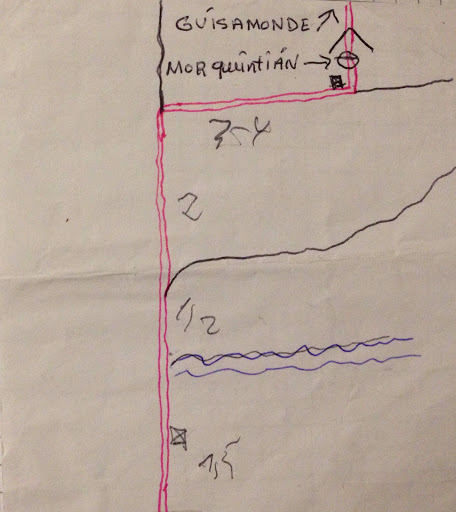 GUÍSAMONDE
MORquintIÁN
3-4
2
1/2
1,5